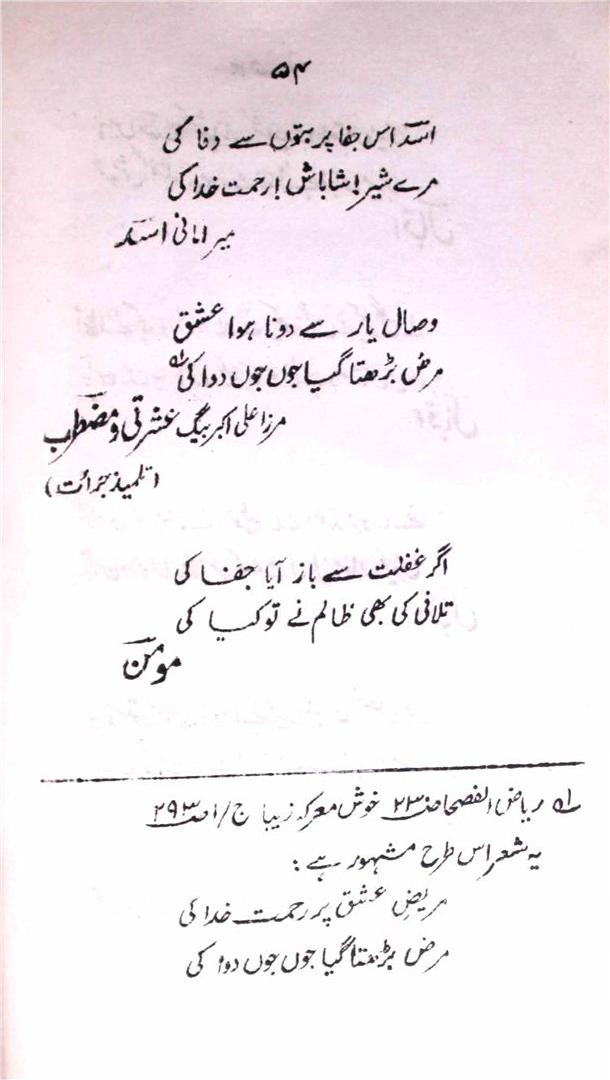 ۵۴
اسد اس جفا پر بتوں سے وفا کی
مرے شیر! شاباش! رحمت خدا کی
میر امانی اسد
وصال یار سے دونا ہوا عشق
مرض بڑھتا گیا جوں جوں دوا کی ؎۱
مرزا علی اکبر بیگ عشرتی و مضطرب
(تلمیذ جرائت)
اگر غفلت سے باز آیا جفا کی
تلافی کی بھی ظالم نے تو کیا کی
مومن
؎۱ ریاض الفصحا صـ ۲۳ خوش معرکہ زیبا ج/۱ صـ ۲۹۳
یہ شعر اس طرح مشہور ہے :
مریضِ عشق پر رحمت خدا کی
مرض بڑھتا گیا جوں جوں دوا کی